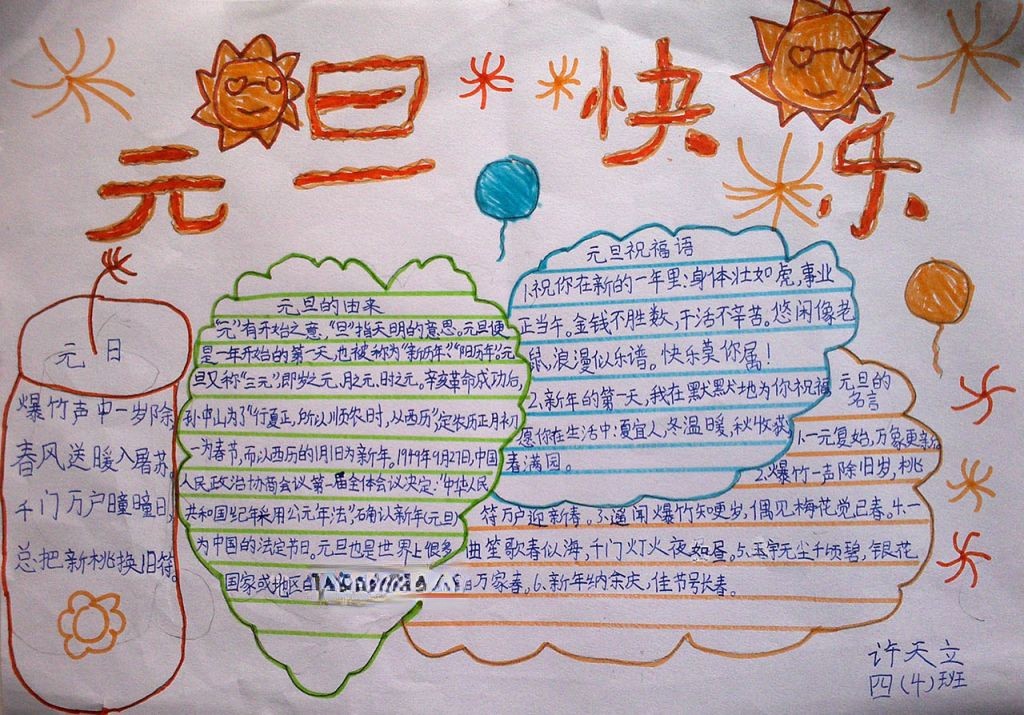 元旦快乐
元日
爆竹声中一岁除
春风送暖入屠苏。
千门万户曈曈日,
总把新桃换旧符。
元旦的由来
“元”有开始之意,“旦”指天明的意思。元旦便
是一年开始的第一天,也被称为“新历年”“阳历年”。元
旦又称“三元”,即岁之元、月之元、时之元。辛亥革命成功后,
孙中山为了“行夏正,所以顺农时,从西历”,定农历正月初
一为春节,而以西历的1月1日为新年。1949年9月27日,中国
人民政治协商会议第一届全体会议决定:“中华人民
共和国纪年采用公元年法”,确认新年(元旦)
为中国的法定节日。元旦也是世界上很多
国家或地区的
元旦祝福语
1.祝你在新的一年里:身体壮如虎,事业
正当午。金钱不胜数,干活不辛苦。悠闲像老
鼠,浪漫似乐谱。快乐莫你属!
2.新年的第一天,我在默默地为你祝福
愿你在生活中:夏宜人,冬温暖,秋收获
春满园。
元旦的
名言
1.一元复始,万象更新
2.爆竹一声除旧岁,桃
符万户迎新春。3.遥闻爆竹知更岁,偶见梅花觉已春。4.一
曲笙歌春似海,千门灯火夜如昼。5.玉宇无尘千顷碧,银花
万家春。6.新年纳余庆,佳节号长春。
许天立
四(4)班